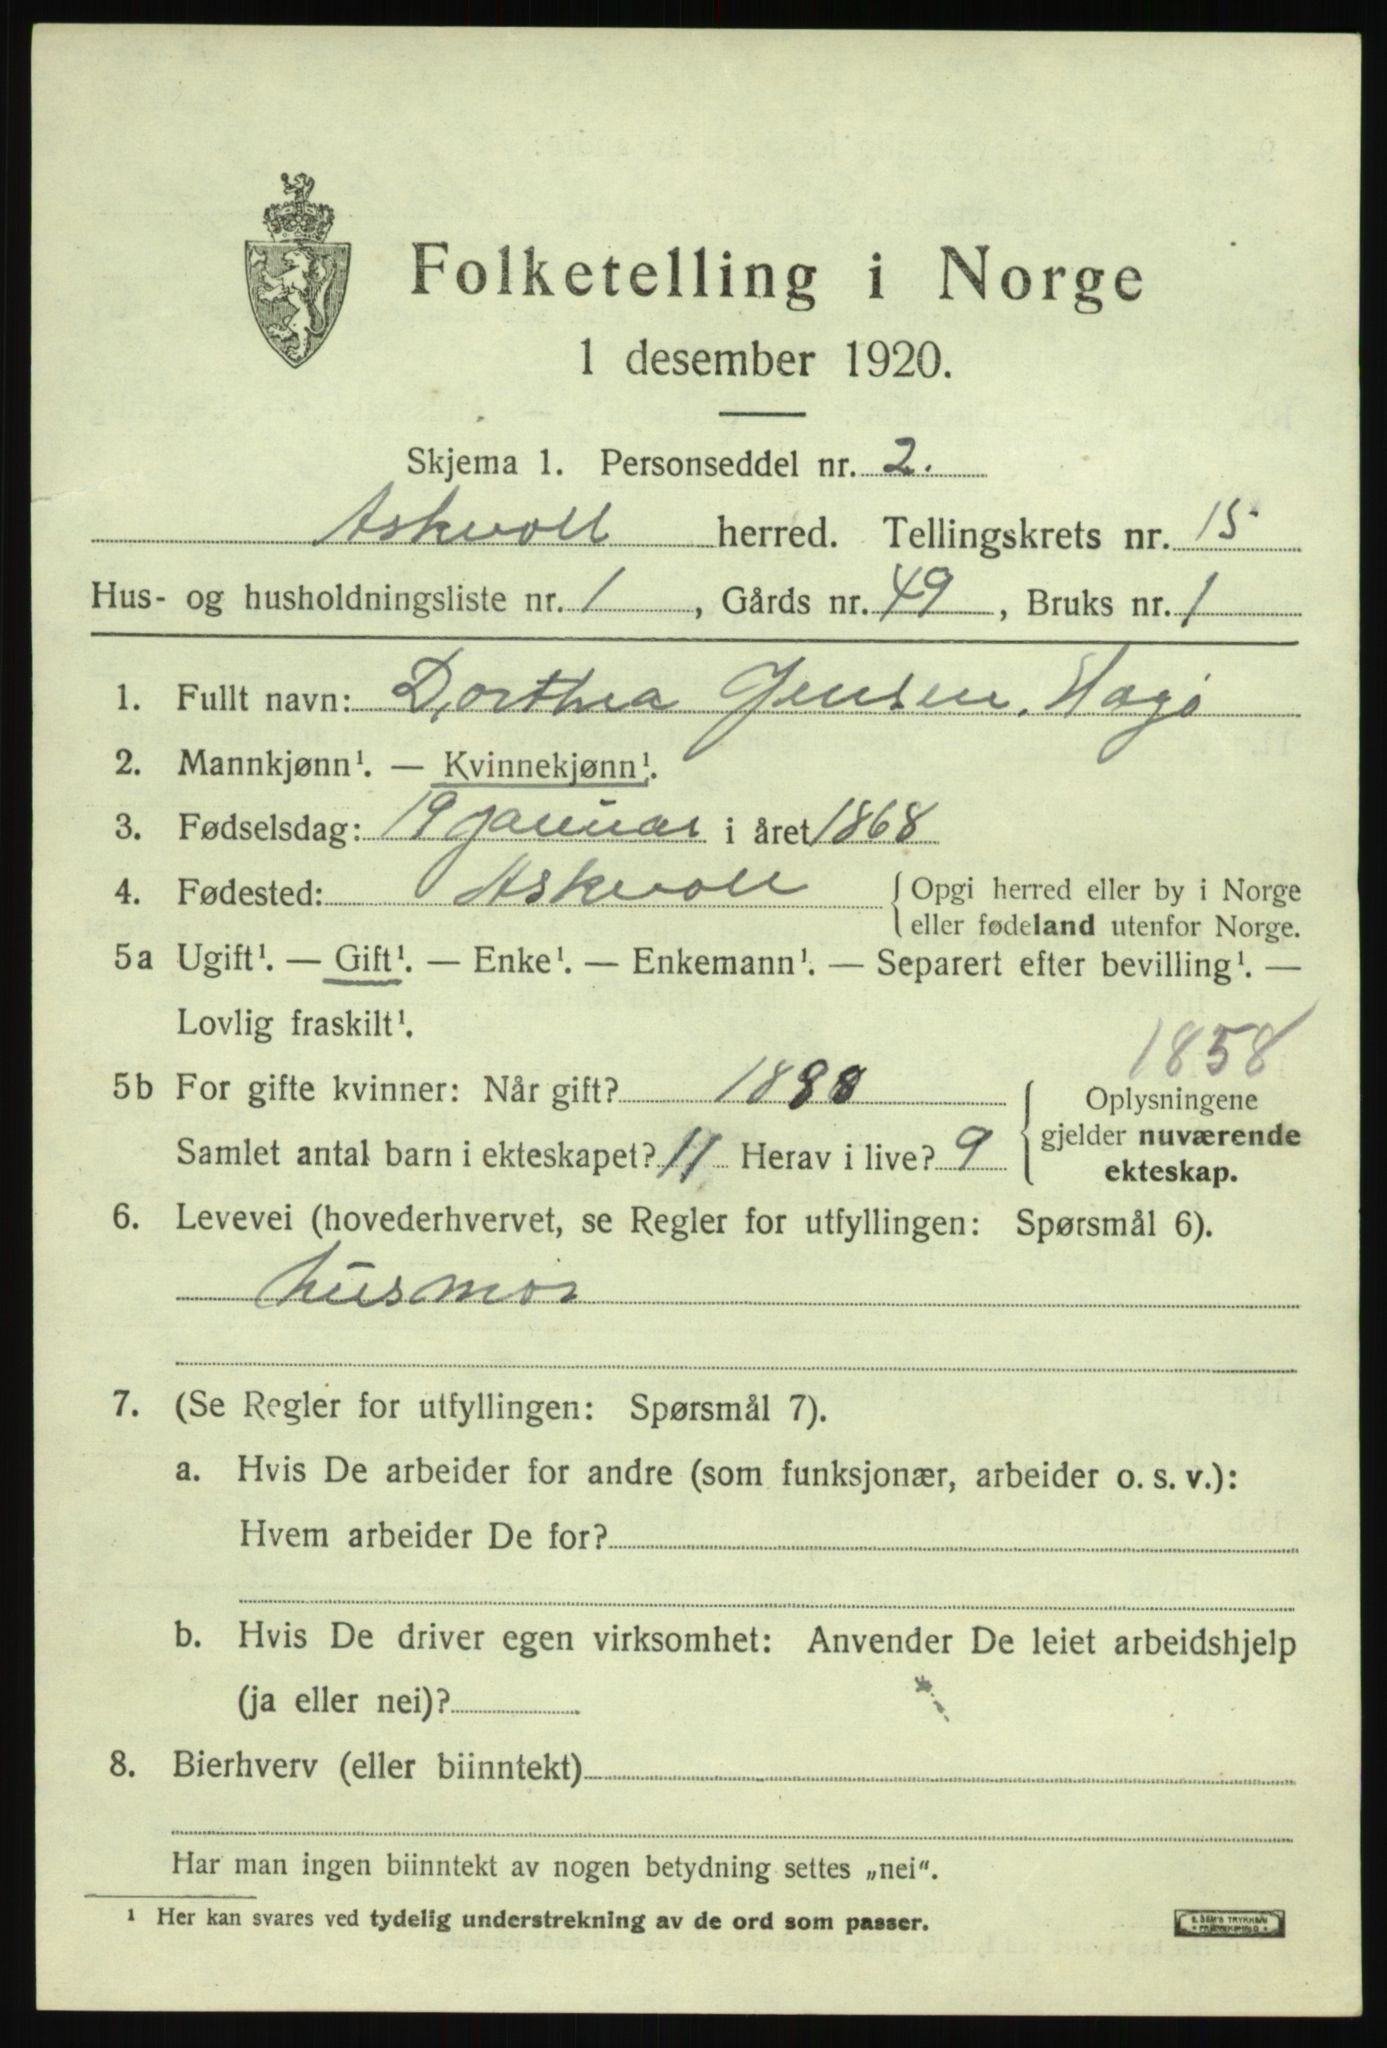 Folketelling i Norge
1 desember 1920.
Skjema 1. Personseddel nr. 2.
Askvoll herred. Tellingskrets nr. 15
Hus- og husholdningsliste nr. 1, Gårds nr. 49, Bruks nr. 1
1. Fullt navn: Dorthea Jensen.
2. Mannkjønn¹. — Kvinnekjønn¹.
3. Fødselsdag: 19 januar i året 1868
4. Fødested: Askvoll { Opgi herred eller by i Norge
eller fødeland utenfor Norge.
5a Ugift¹. — Gift¹. — Enke¹. — Enkemann¹. — Separert efter bevilling¹. —
Lovlig fraskilt¹.
1858
5b For gifte kvinner: Når gift? 1888 { Oplysningene
gjelder nuværende
ekteskap.
Samlet antal barn i ekteskapet? 11 Herav i live? 9
6. Levevei (hovederhvervet, se Regler for utfyllingen: Spørsmål 6).
husmor
7. (Se Regler for utfyllingen: Spørsmål 7).
a. Hvis De arbeider for andre (som funksjonær, arbeider o. s. v.):
Hvem arbeider De for?
b. Hvis De driver egen virksomhet: Anvender De leiet arbeidshjelp
(ja eller nei)?
8. Bierhverv (eller biinntekt)
Har man ingen biinntekt av nogen betydning settes „nei“.
¹ Her kan svares ved tydelig understrekning av de ord som passer.